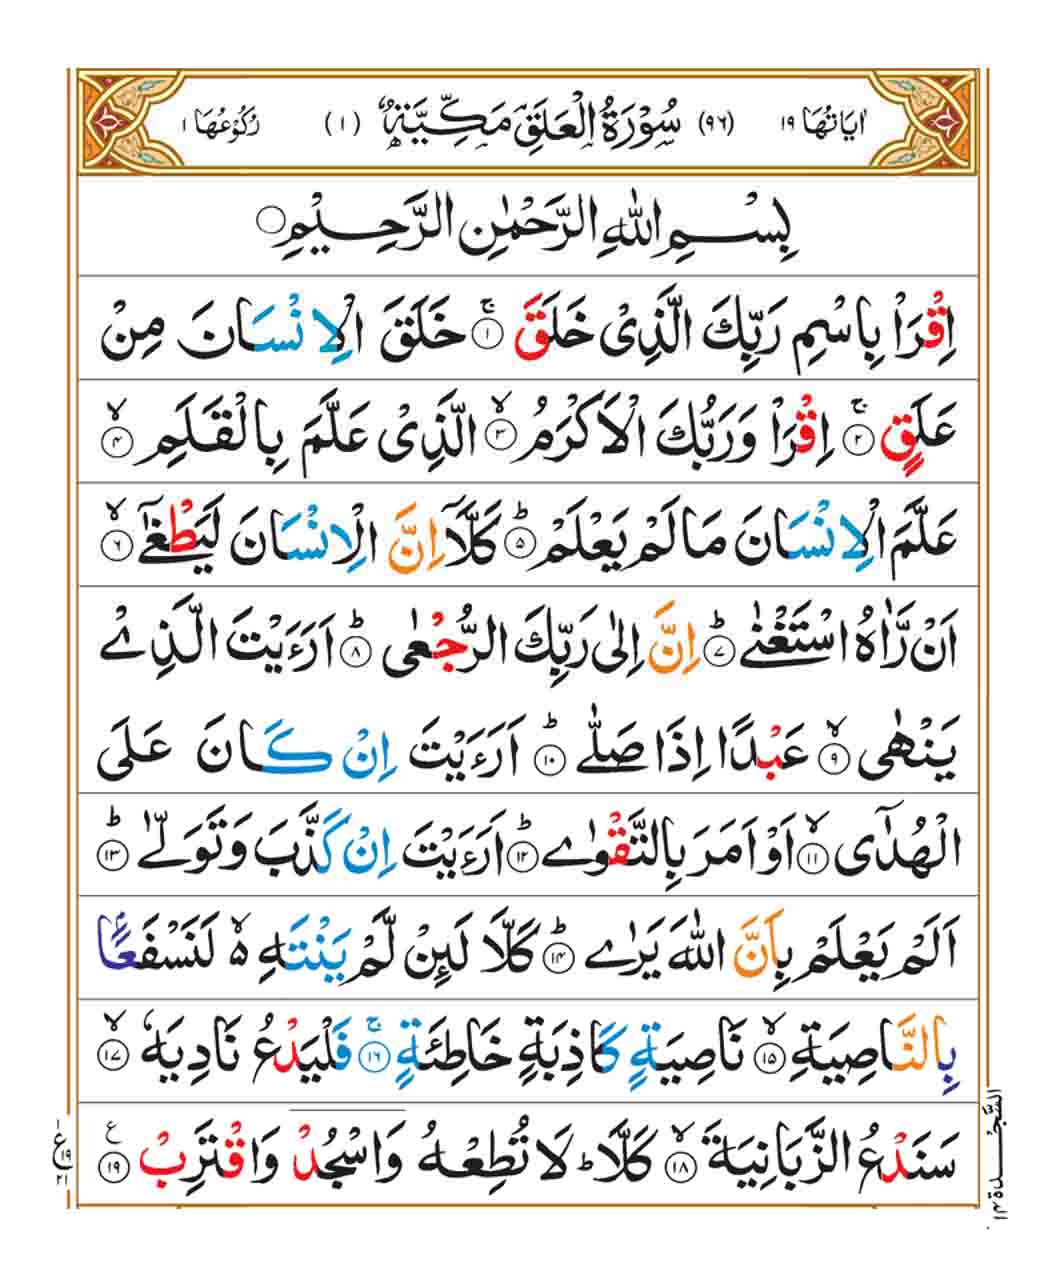 اٰيَاتُهَا ١٩ (٩٦) سُوْرَةُ الْعَلَقِ مَكِّيَّةٌ (١) رُكُوْعُهَا ١
بِسْمِ اللّٰهِ الرَّحْمٰنِ الرَّحِيْمِ
اِقْرَاْ بِاسْمِ رَبِّكَ الَّذِىْ خَلَقَ ۚ‏ ١ خَلَقَ الْاِنْسَانَ مِنْ
عَلَقٍ ۚ‏ ٢ اِقْرَاْ وَرَبُّكَ الْاَكْرَمُ ۙ‏ ٣ الَّذِىْ عَلَّمَ بِالْقَلَمِ ۙ‏ ٤
عَلَّمَ الْاِنْسَانَ مَا لَمْ يَعْلَمْ ؕ‏ ٥ كَلَّاۤ اِنَّ الْاِنْسَانَ لَيَطْغٰٓى ۙ‏ ٦
اَنْ رَّاٰهُ اسْتَغْنٰى ؕ‏ ٧ اِنَّ اِلٰى رَبِّكَ الرُّجْعٰى ؕ‏ ٨ اَرَءَيْتَ الَّذِىْ
يَنْهٰى ۙ‏ ٩ عَبْدًا اِذَا صَلّٰى ؕ‏ ١٠ اَرَءَيْتَ اِنْ كَانَ عَلَى
الْهُدٰٓى ۙ‏ ١١ اَوْ اَمَرَ بِالتَّقْوٰى ؕ‏ ١٢ اَرَءَيْتَ اِنْ كَذَّبَ وَتَوَلّٰى ؕ‏ ١٣
اَلَمْ يَعْلَمْ بِاَنَّ اللّٰهَ يَرٰى ؕ‏ ١٤ كَلَّا لَئِنْ لَّمْ يَنْتَهِ ۙ۬ لَنَسْفَعًۢا
بِالنَّاصِيَةِ ۙ‏ ١٥ نَاصِيَةٍ كَاذِبَةٍ خَاطِئَةٍ ۚ‏ ١٦ فَلْيَدْعُ نَادِيَهٗ ۙ‏ ١٧
سَنَدْعُ الزَّبَانِيَةَ ۙ‏ ١٨ كَلَّا ؕ لَا تُطِعْهُ وَاسْجُدْ وَاقْتَرِبْ ١٩ ع
السَّجْدَة ١٤
١
ع ١٩
٢١